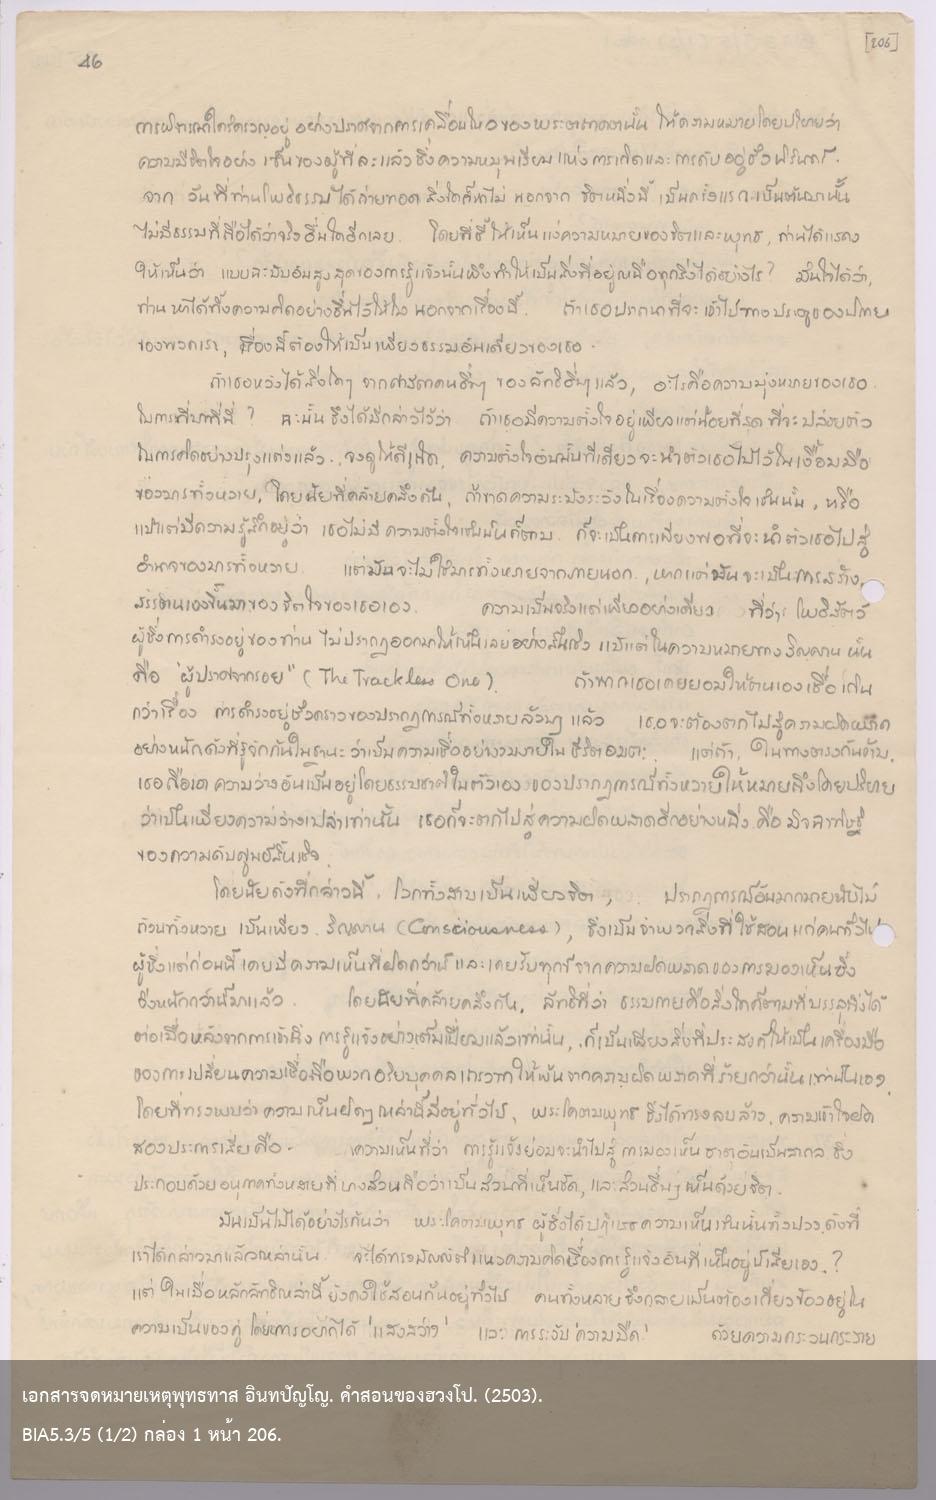 46
[206]
การพิจารณาใคร่ครวญอยู่ อย่างปราศจากการเคลื่อนไหวของพระตถาคตนั้น ให้ความหมายโดยปริยายว่า
ความมีจิตใจอย่าง เช่นของผู้ที่ละแล้ว ซึ่งความหมุนเวียนแห่งการเกิดและการดับ
จาก วันที่ท่านโพธิธรรมได้ถ่ายทอด สิ่งใดก็หาไม่ นอกจาก จิตหนึ่งนี้ เป็นครั้งแรกเป็นต้นมานั้น
ไม่มีธรรมที่ถือได้ว่าจริงอื่นใดอีกเลย. โดยที่ชี้ให้เห็นแง่ความหมายของจิตและพุทธ, ท่านได้แสดง
ให้เห็นว่า แบบฉะบับอันสูงสุดของการรู้แจ้งนั้นพึงทำให้เป็นสิ่งที่อยู่เหนือทุกสิ่งได้อย่างไร? มั่นใจได้ว่า,
ท่าน หาได้ทิ้งความคิดอย่างอื่นไว้ให้ไม่ นอกจากเรื่องนี้. ถ้าเธอปรารถนาที่จะเข้าไปทางประตูของ
ของพวกเรา, เรื่องนี้ต้องให้เป็นเพียงธรรมอันเดียวของเธอ.
ถ้าเธอหวังได้สิ่งใดๆ จากศาสดาคนอื่นๆ ของลัทธิอื่นๆ แล้ว, อะไรคือความมุ่งหมายของเธอ
ในการที่มาที่นี่? ฉะนั้น จึงได้มีกล่าวไว้ว่า ถ้าเธอมีความตั้งใจอยู่เพียงแต่น้อยที่สุด ที่จะปล่อยตัว
ในการคิดอย่างปรุงแต่งแล้ว. จงดูให้ดีเถิด, ความตั้งใจอันนั้นทีเดียวจะนำตัวเธอไปไว้ในเงื้อมมือ
ของมารทั้งหลาย. โดยนัยที่คล้ายคลึงกัน, ถ้าขาดความระมัดระวังในเรื่องความตั้งใจเช่นนั้น, หรือ
แม้แต่มีความรู้สึกอยู่ว่า เธอไม่มีความตั้งใจเช่นนั้นก็ตาม ก็จะเป็นการเพียงพอที่จะนำตัวเธอไปสู่
อำนาจของมารทั้งหลาย. แต่มันจะไม่ใช่มารทั้งหลายจากภายนอก, หากแต่มันจะเป็นการสร้าง
สรรค์ตนเองขึ้นมาของจิตใจของเธอเอง. ความเป็นจริงแต่เพียงอย่างเดียว ที่ว่า โพธิสัตว์
ผู้ซึ่งการดำรงอยู่ของท่าน ไม่ปรากฏออกมาให้เห็นเลยอย่างสิ้นเชิง แม้แต่ในความหมายทางวิญญาณ นั้น
คือ "ผู้ปราศจากรอย" (The Trackless One). ถ้าหากเธอเคยยอมให้ตนเองเชื่อเกิน
กว่าเรื่อง การดำรงอยู่ชั่วคราวของปรากฏการณ์ทั้งหลายล้วนๆ แล้ว เธอจะต้องตกไปสู่ความผิดพลาด
อย่างหนักดังที่รู้จักกันในฐานะว่าเป็นความเชื่ออย่างงมงายในชีวิตอมตะ. แต่ถ้า, ในทางตรงกันข้าม.
เธอถือเอาความว่างอันเป็นอยู่โดยธรรมชาติในตัวเองของปรากฏการณ์ทั้งหลายให้หมายถึงโดยปริยาย
ว่าเป็นเพียงความว่างเปล่าเท่านั้น เธอก็จะตกไปสู่ความผิดพลาดอีกอย่างหนึ่ง คือ มิจฉาทิฏฐิ
ของความดับสูญสิ้นเชิง.
โดยนัยดังที่กล่าวนี้. โลกทั้งสามเป็นเพียงจิต, ปรากฏการณ์อันมากมายนับไม่
ถ้วนทั้งหลาย เป็นเพียง วิญญาณ (Consciousness), ซึ่งเป็นจำพวกสิ่งที่ใช้สอนแก่คนทั่วไป
ผู้ซึ่งแต่ก่อนนี้เคยมีความเห็นที่ผิดกว่านี้ และเคยรับทุกข์จากความผิดพลาดของการมองเห็นซึ่ง
ยิ่งหนักกว่านี้มาแล้ว. โดยนัยที่คล้ายคลึงกัน, ลัทธิที่ว่า ธรรมกายคือสิ่งใดก็ตามที่บรรลุถึงได้
ต่อเมื่อหลังจากการเข้าถึงการรู้แจ้งอย่างเต็มเปี่ยมแล้วเท่านั้น, ก็เป็นเพียงสิ่งที่ประสงค์ให้เป็นเครื่องมือ
ของการเปลี่ยนความเชื่อถือพวกอริยบุคคลเถรวาทให้พ้นจากความผิดพลาดที่ร้ายกว่านั้นเท่านั้นเอง.
โดยที่ทรงพบว่าความเห็นผิดๆ เหล่านี้มีอยู่ทั่วไป, พระโคตมพุทธ จึงได้ทรงลบล้างความเข้าใจผิด
สองประการเสีย คือ- ความเห็นที่ว่า การรู้แจ้งย่อมจะนำไปสู่ การมองเห็นธาตุอันเป็นสากล ซึ่ง
ประกอบด้วยอนุภาคทั้งหลายที่บางส่วนถือว่าเป็นส่วนที่เห็นชัด, และส่วนอื่นๆ เห็นด้วยจิต.
มันเป็นไปได้อย่างไรกันว่า พระโคตมพุทธ ผู้ซึ่งได้ปฏิเสธความเห็นเช่นนั้นทั้งปวง ดังที่
เราได้กล่าวมาแล้วเหล่านั้น จะได้ทรงบัญญัติแนวความคิดเรื่องการรู้แจ้งอันที่เห็นอยู่นี้เสียเอง.?
แต่ ในเมื่อหลักลัทธิเหล่านี้ ยังคงใช้สอนกันอยู่ทั่วไป คนทั้งหลายจึงกลายเป็นต้องเกี่ยวข้องอยู่ใน
ความเป็นของคู่ โดยการอยากได้ 'แสงสว่าง' และ การระงับ'ความมืด.' ด้วยความกระวนกระวาย
เอกสารจดหมายเหตุพุทธทาส อินทปัญโญ. คำสอนของฮวงโป. (2503).
BIA5.3/5 (1/2) กล่อง 1 หน้า 206.